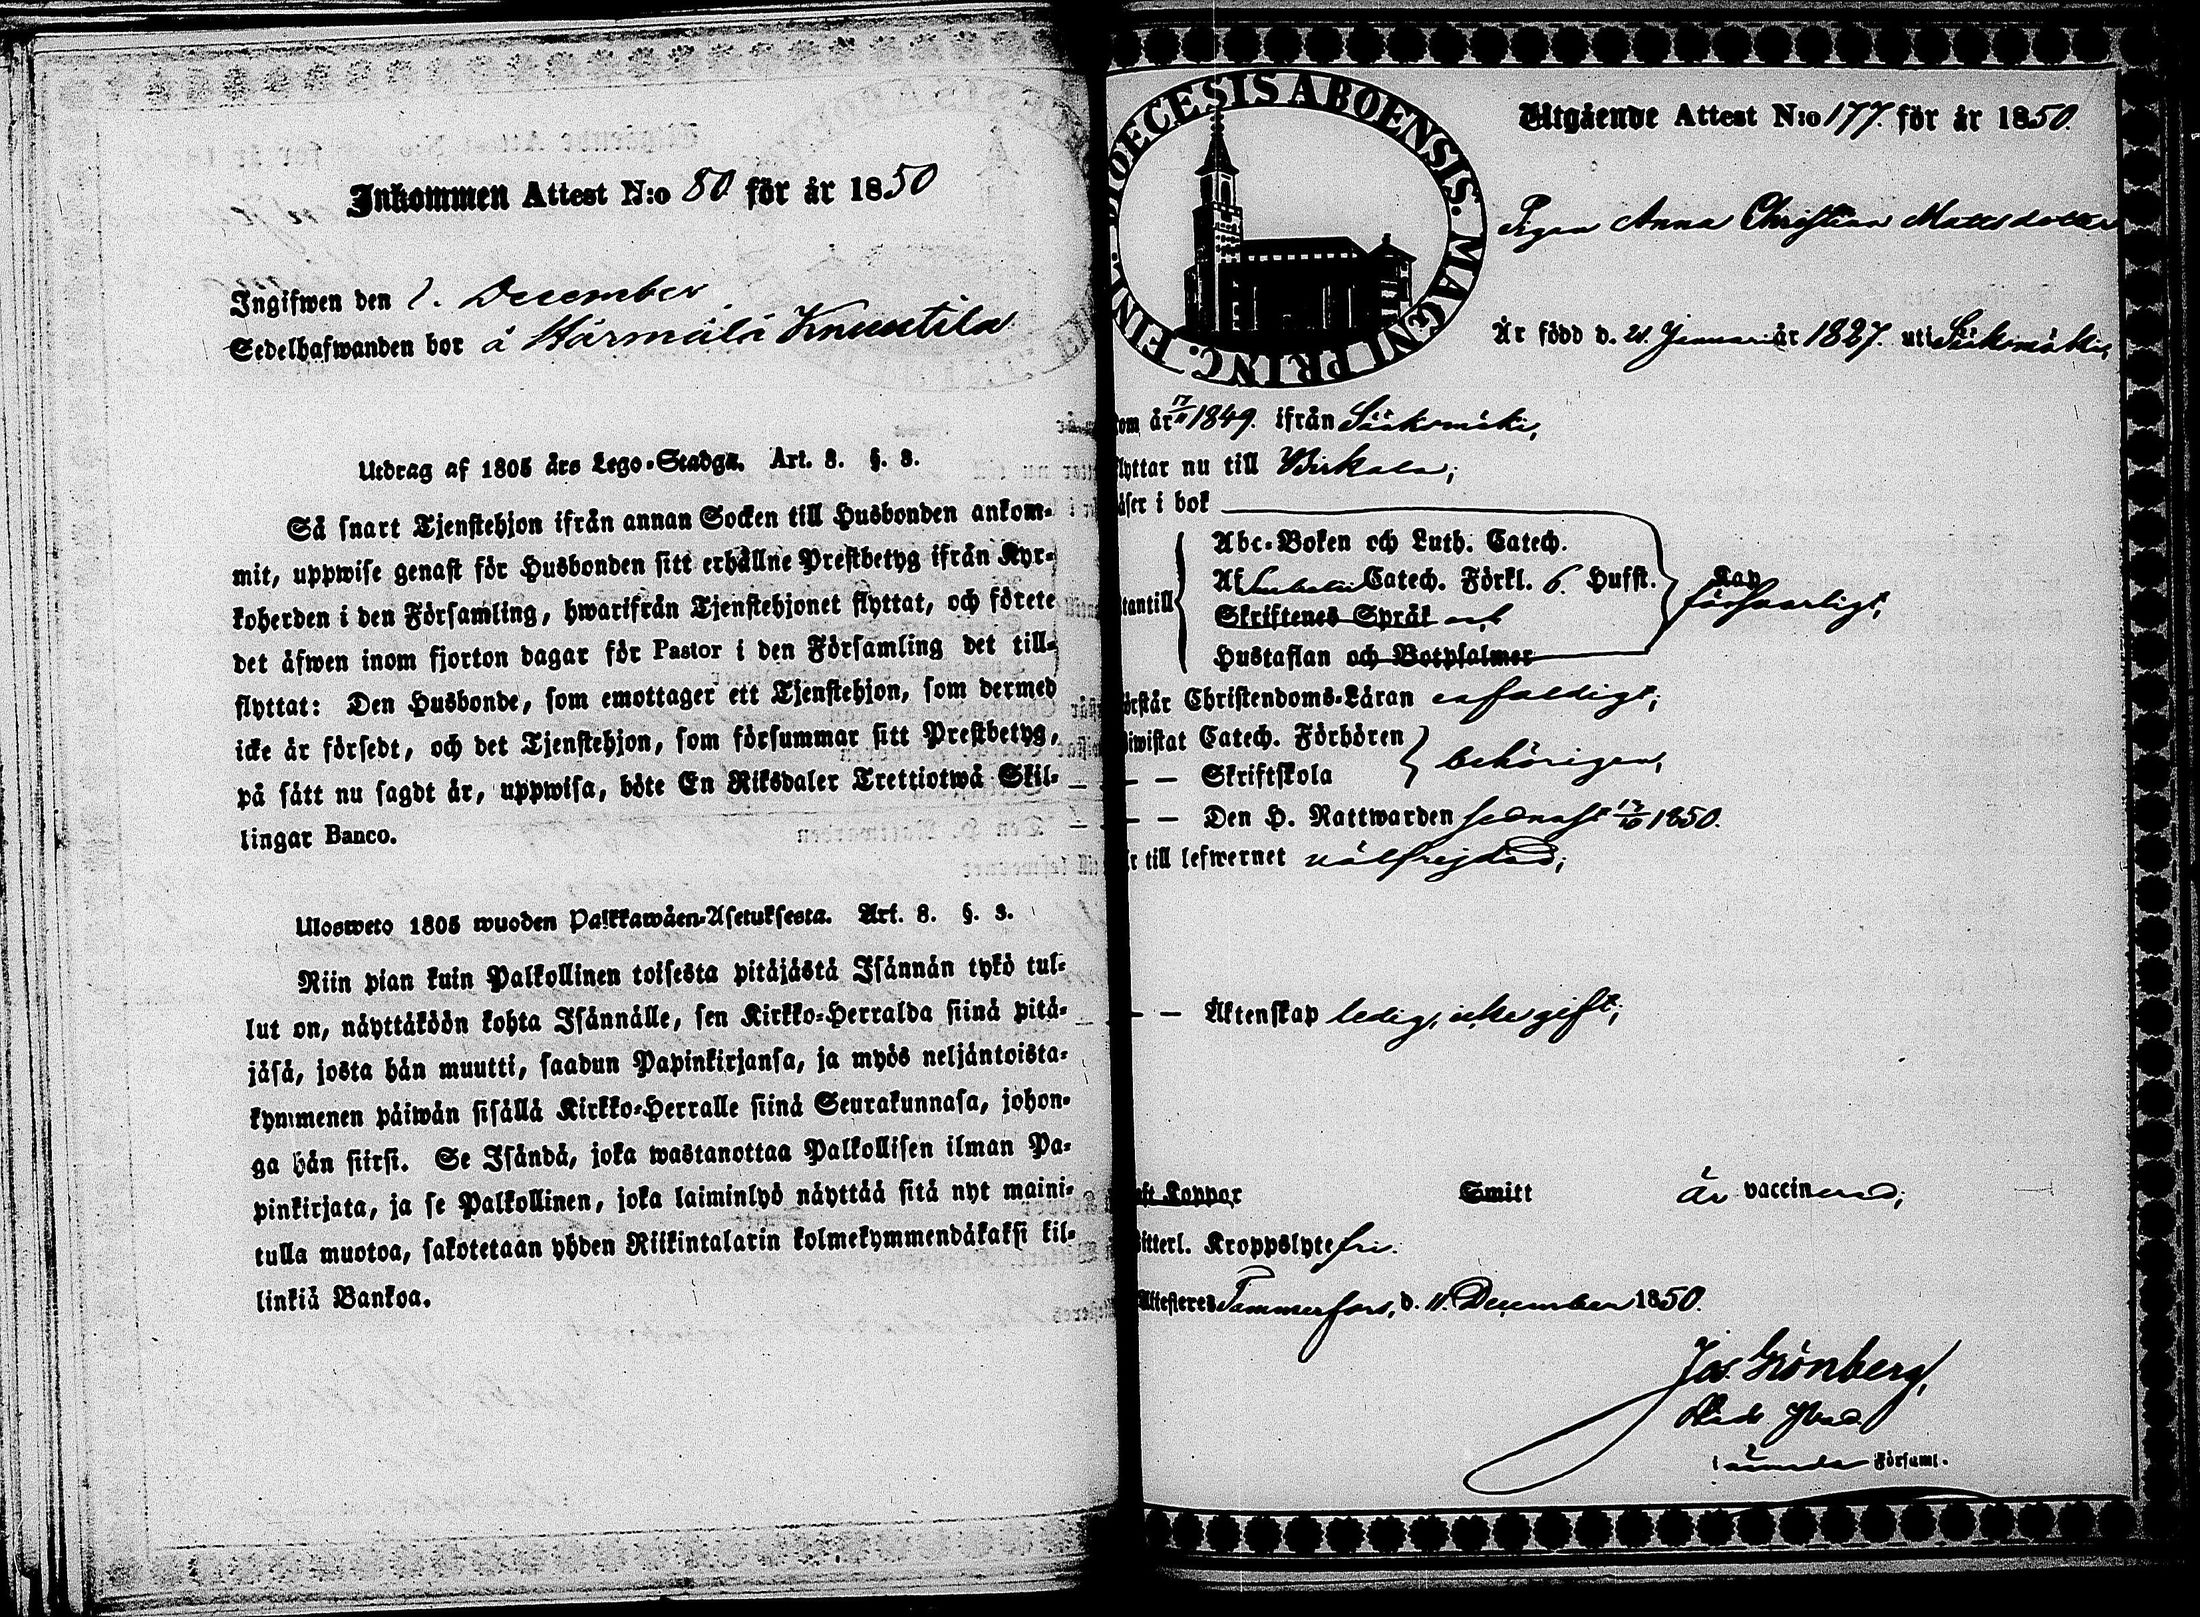 Inkommen Attest N:o 80 för år 1850
Ingifwen den 1. December
Sedelhafwanden bor å Härmälä Knuutila
Utdrag af 1805 års Lego-Stadga. Art. 8. §. 3.
Så snart Tjenstehjon ifrån annan Socken till Husbonden ankom-
mit, uppwise genast för Husbonden sitt erhållne Prestbetyg ifrån Kyr-
koherden i den Församling, hwarifrån Tjenstehjonet flyttat, och förete
det äfwen inom fjorton dagar för Pastor i den Församling det till-
flyttat: Den Husbonde, som emottager ett Tjenstehjon, som dermed
icke är försedt, och det Tjenstehjon, som försummar sitt Prestbetyg,
på sätt nu sagdt är, uppwisa, böte En Riksdaler Trettiotwå Skil-
lingar Banco.
Ulosweto 1805 wuoden Palkkawäen-Asetuksesta. Art. 8. §. 3.
Niin pian kuin Palkollinen toisesta pitäjästä Isännän tykö tul-
lut on, näyttäköön kohta Isännälle, sen Kirkko-Herralda siinä pitä-
jäsä, josta hän muutti, saadun Papinkirjansa, ja myös neljäntoista-
kymmenen päiwän sisällä Kirkko-Herralle siinä Seurakunnasa, johon-
ga hän siirsi. Se Isändä, joka wastanottaa Palkollisen ilman Pa-
pinkirjata, ja se Palkollinen, joka laiminlyö näyttää sitä nyt maini-
tulla muotoa, sakotetaan yhden Riikintalarin kolmekymmendäkaksi kil-
linkiä Bankoa.
DIOECESIS ABOENSIS. MAGNI PRINC. FINL.
Utgående Attest N:o 177. för år 1850.
Pigan Anna Christina Mattsdotter
Är född d. 21 Januari år 1827. uti Sääksmäki,
om år 17/11 1849. ifrån Sääksmäki,
lyttar nu till Birkala;
äser i bok
Abc-Boken och Luth. Catech.
Af Catech. Förkl. 6. Hufst.
tantill Skriftenes Språk och
Hustaflan och Botpsalmer
försvarligt,
örstår Christendoms-Läran enfaldigt;
iwistat Catech. Förhören
— — Skriftskola behörigen,
— — Den H. Nattwarden sednast 13/10 1850.
r till lefwernet välfrejdad;
— — Äktenskap ledig, icke gift;
ft Koppor Smitt Är vaccinerad;
itterl. Kroppslyte fri.
Attesteres Tammerfors, d. 11. December 1850.
Jos. Grönberg,
i Församl.